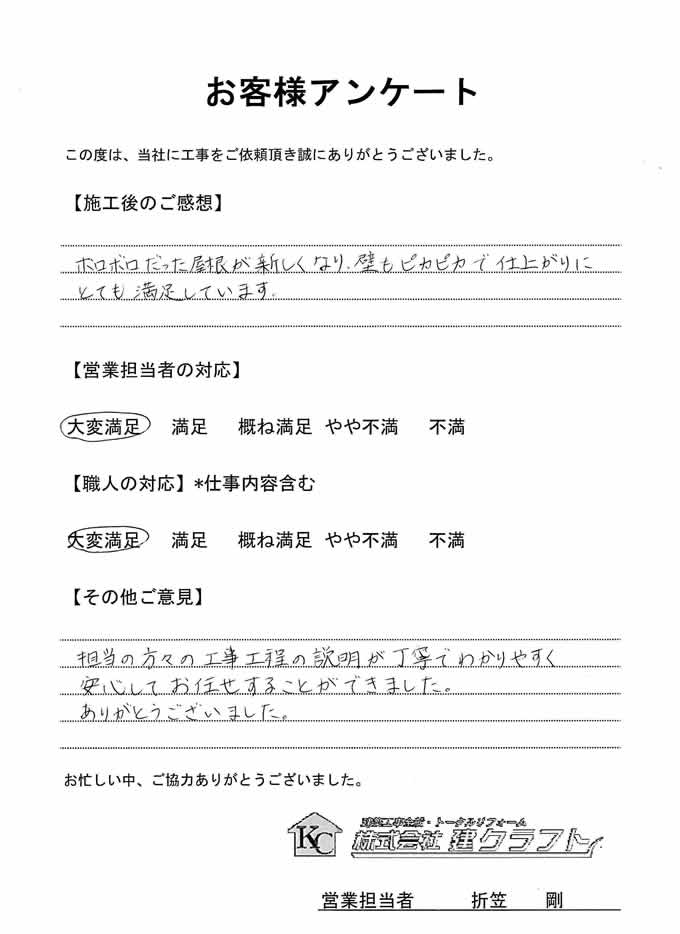 お客様アンケート
この度は、当社に工事をご依頼頂き誠にありがとうございました。
【施工後のご感想】
ボロボロだった屋根が新しくなり、壁もピカピカで仕上がりに
とても満足しています。
【営業担当者の対応】
大変満足 満足 概ね満足 やや不満 不満
【職人の対応】*仕事内容含む
大変満足 満足 概ね満足 やや不満 不満
【その他ご意見】
担当の方々の工事工程の説明が丁寧でわかりやすく
安心してお任せすることができました。
ありがとうございました。
お忙しい中、ご協力ありがとうございました。
建築工事全般・トータルリフォーム
KC 株式会社 建クラフト
営業担当者 折笠 剛